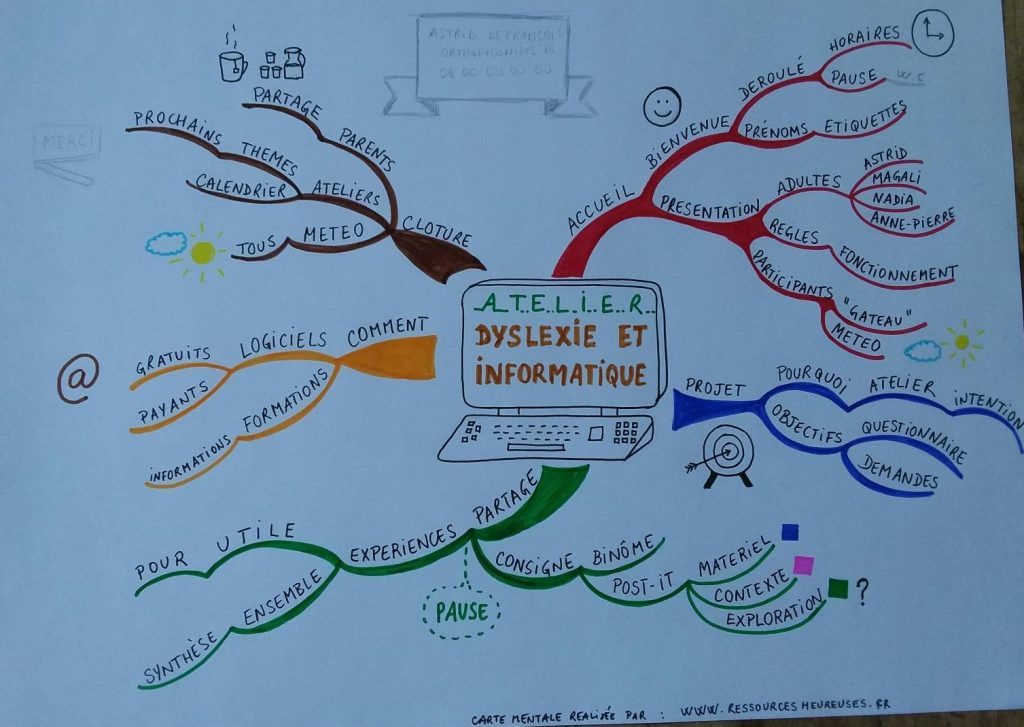 ATELIER
DYSLEXIE ET
INFORMATIQUE
ACCUEIL
BIENVENUE
DEROULÉ
HORAIRES
PAUSE
W.C
PRÉNOMS
ETIQUETTES
PRESENTATION
ADULTES
ASTRID
MAGALI
NADIA
ANNE-PIERRE
REGLES
FONCTIONNEMENT
PARTICIPANTS
"GATEAU"
METEO
PROJET
POURQUOI
ATELIER
INTENTION
OBJECTIFS
QUESTIONNAIRE
DEMANDES
PARTAGE
CONSIGNE
BINÔME
POST-IT
MATERIEL
CONTEXTE
EXPLORATION
?
PAUSE
EXPERIENCES
UTILE
POUR
ENSEMBLE
SYNTHÈSE
COMMENT
LOGICIELS
GRATUITS
PAYANTS
FORMATIONS
INFORMATIONS
@
CLOTURE
PARENTS
PARTAGE
ATELIERS
THEMES
PROCHAINS
CALENDRIER
METEO
TOUS
MERCI
ASTRID LEFRANCOIS
CARTE MENTALE REALISÉE PAR : WWW.RESSOURCESHEUREUSES.FR